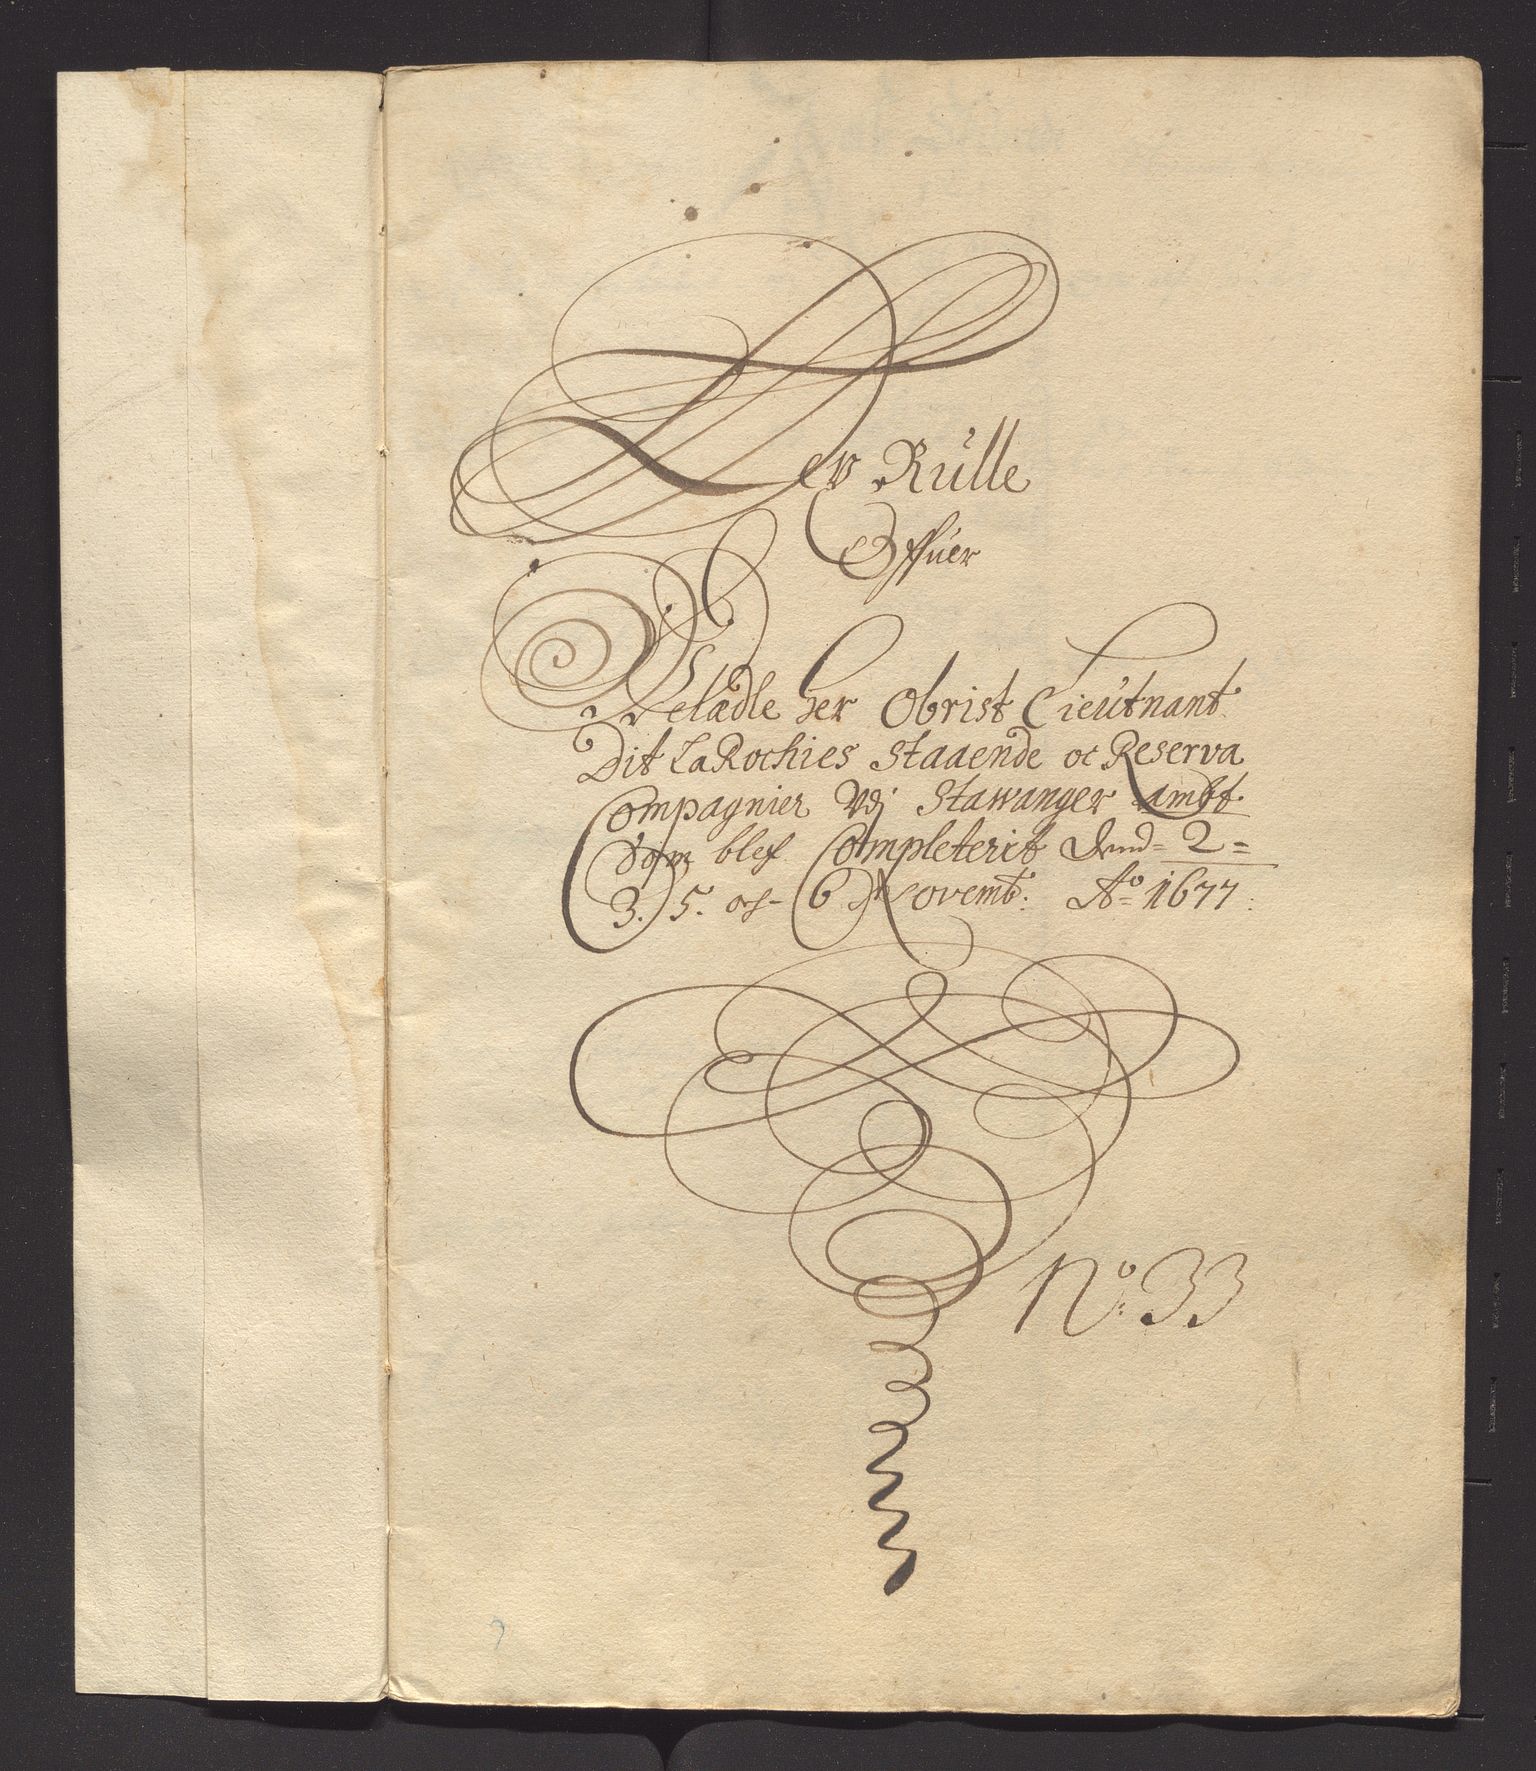 Rülle
Offuer
Velædle her Obrist Lieütnant
Dit LaRochies Staaende oc Reserva
Compagnier Vdj Stawanger Lambt.
Som blef Completerit Dend 2
3. 5. och 6 Novemb: A° 1677:
N°: 33